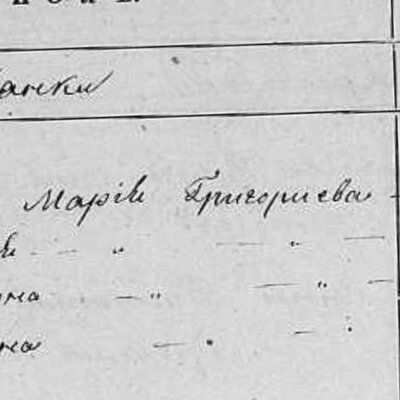 анки
Марія Григориева
— „ — „ —
на — „ — „ —
на — „ — „